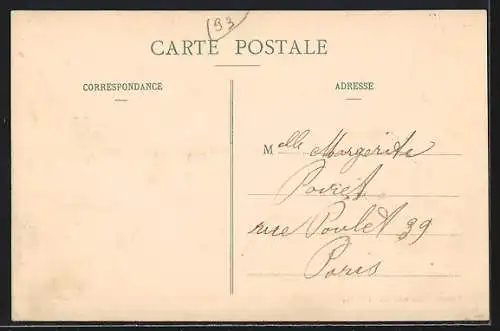 93
CARTE POSTALE
CORRESPONDANCE
ADRESSE
Melle Margerita
Poviet
rue Poulet 39
Paris